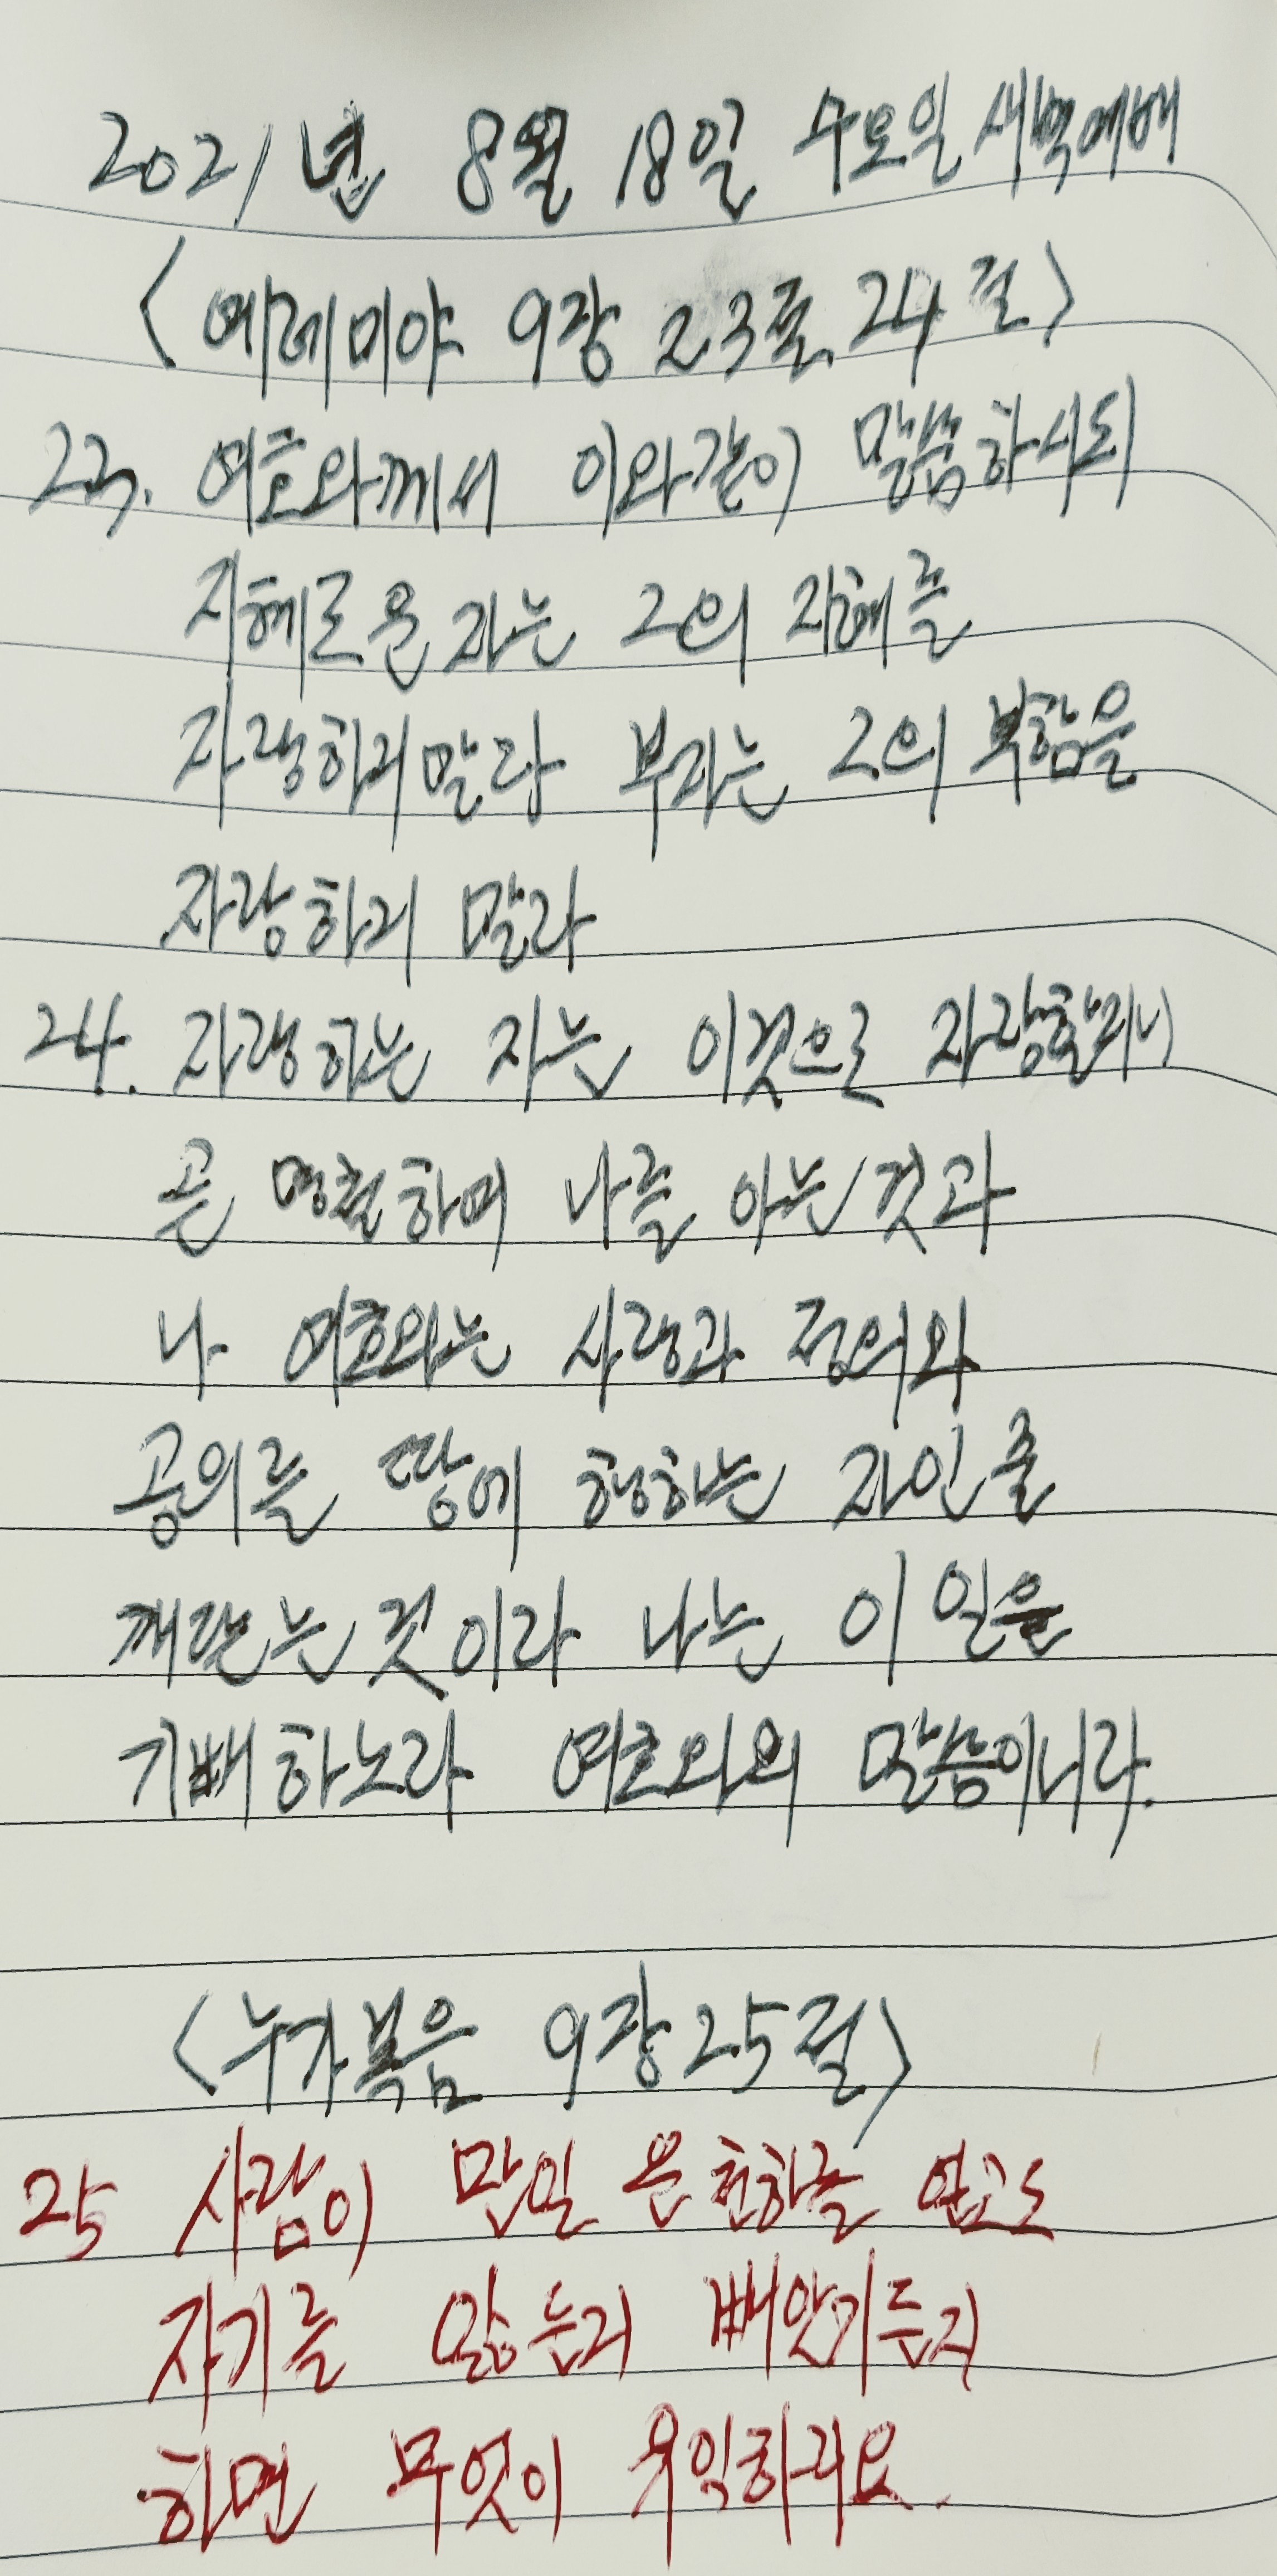 2021년 8월 18일 수요일 새벽예배
<예레미야 9장 23절, 24절>
23. 여호와께서 이와같이 말씀하시되
지혜로운 자는 그의 지혜를
자랑하지말라 부자는 그의 부함을
자랑하지 말라
24. 자랑하는 자는 이것으로 자랑할지니
곧 명철하여 나를 아는것과
나 여호와는 사랑과 정의와
공의를 땅에 행하는 자인줄
깨닫는것이라 나는 이 일을
기뻐하노라 여호와의 말씀이니라.
<누가복음 9장 25절>
25 사람이 만일 온천하를 얻고도
자기를 잃든지 빼앗기든지
하면 무엇이 유익하리요.